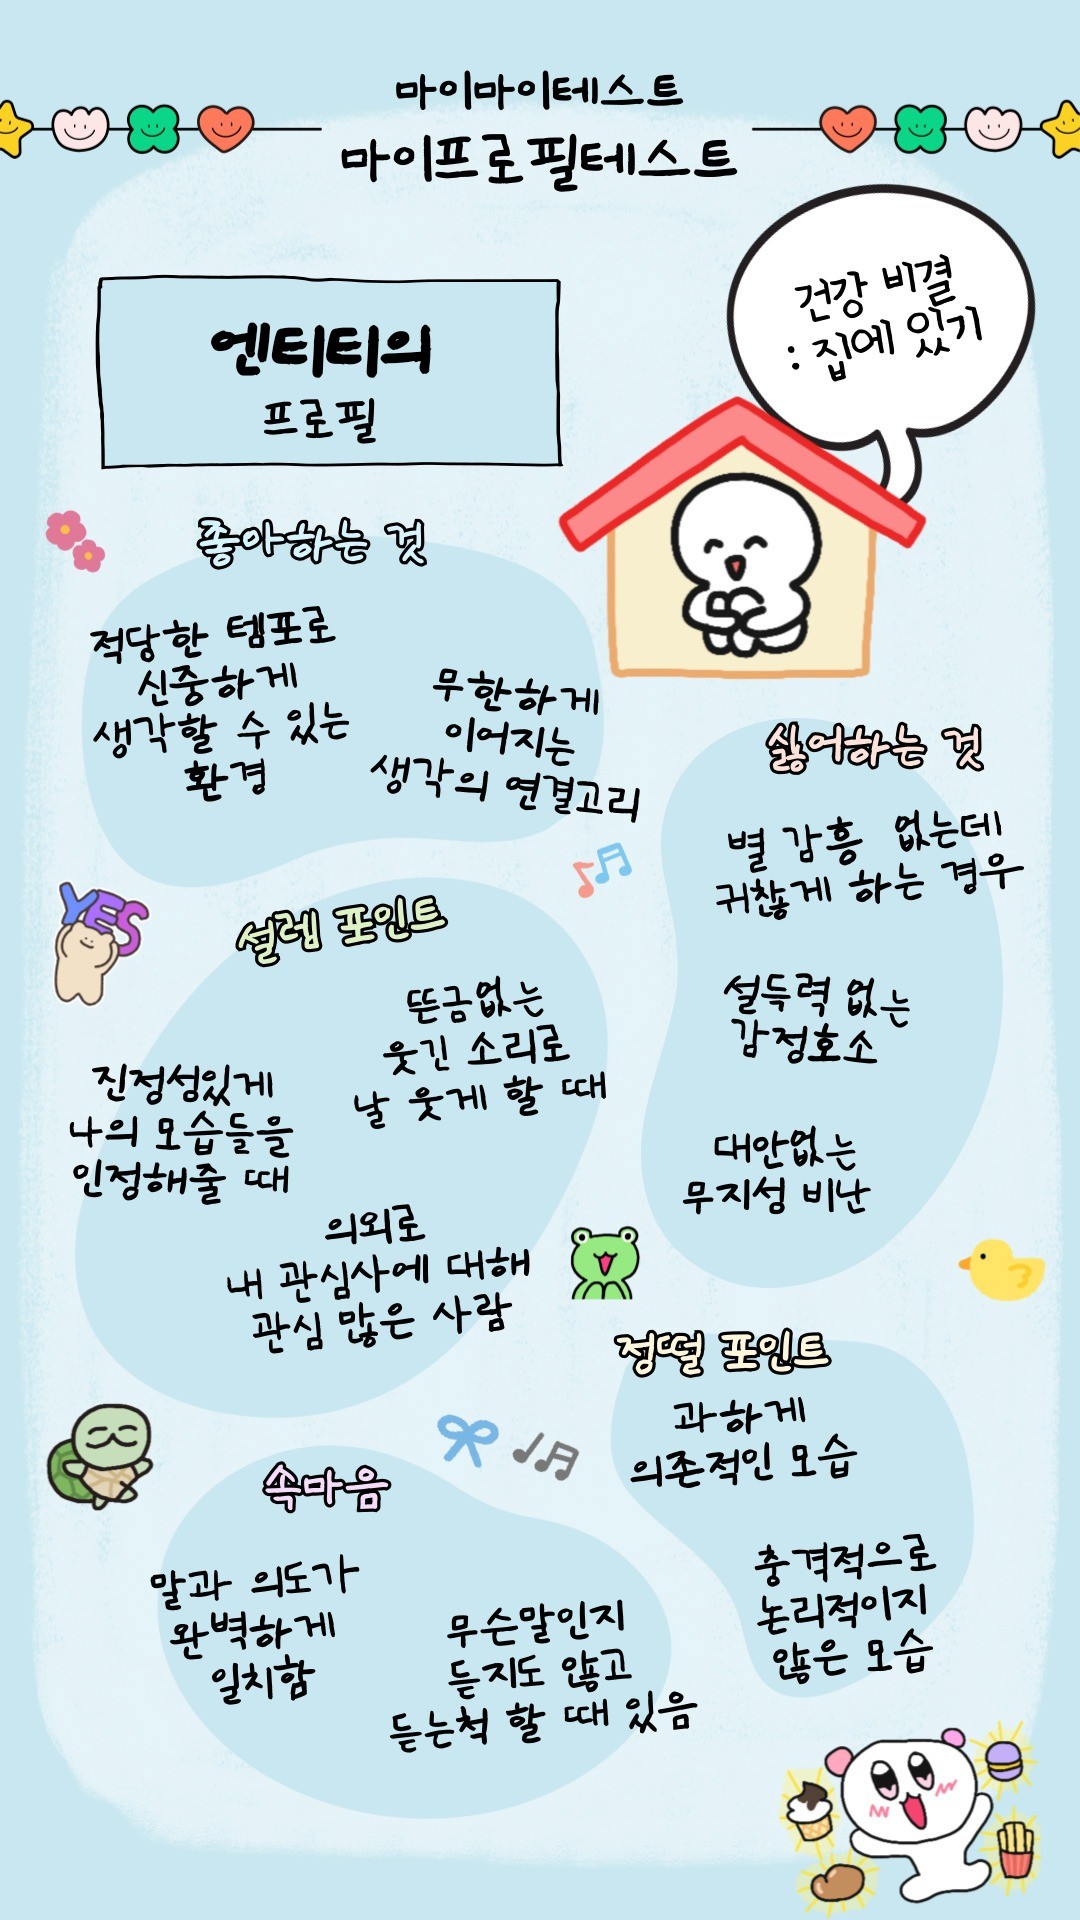 마이마이테스트
마이프로필테스트
건강 비결
: 집에 있기
엔티티의
프로필
좋아하는 것
적당한 템포로
신중하게
생각할 수 있는
환경
무한하게
이어지는
생각의 연결고리
싫어하는 것
별 감흥 없는데
귀찮게 하는 경우
설득력 없는
감정호소
대안없는
무지성 비난
YES
설렘 포인트
뜬금없는
웃긴 소리로
날 웃게 할 때
진정성있게
나의 모습들을
인정해줄 때
의외로
내 관심사에 대해
관심 많은 사람
정떨 포인트
과하게
의존적인 모습
충격적으로
논리적이지
않은 모습
속마음
말과 의도가
완벽하게
일치함
무슨말인지
듣지도 않고
듣는척 할 때 있음